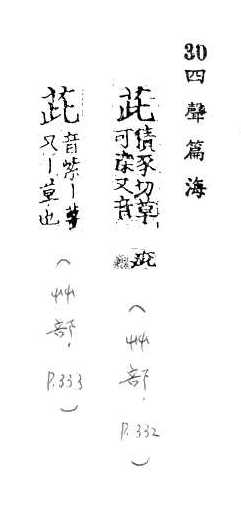 30四聲篇海
茈倩豕切草
可染又音
玼
(艸部.P.332)
茈音紫丨草
又丨草也
(艸部.P.333)